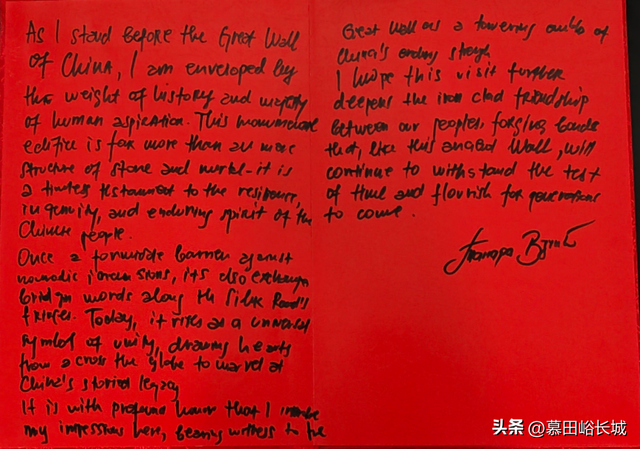 As I stand before the Great Wall
of China, I am enveloped by
the weight of history and majesty
of human aspiration. This monumental
edifice is far more than a mere
structure of stone and it is
a timeless testament to the
ingenuity, and enduring spirit of the
Chinese people.
Once a barrier against
nomadic its also
words along th Silk Road's
fringes. Today, it rises as a universal
symbol of unity, drawing hearts
from across the globe to marvel at
China's storied legacy
It is with profound honor that I
my impressions here, bearing witness to the
Great Wall as a towering of
China's
I hope this visit further
deepens the iron clad friendship
between our peoples, forging bonds
that, like this Wall, will
continue to withstand the test
of time and flourish for generations
to come.
头条 @慕田峪长城